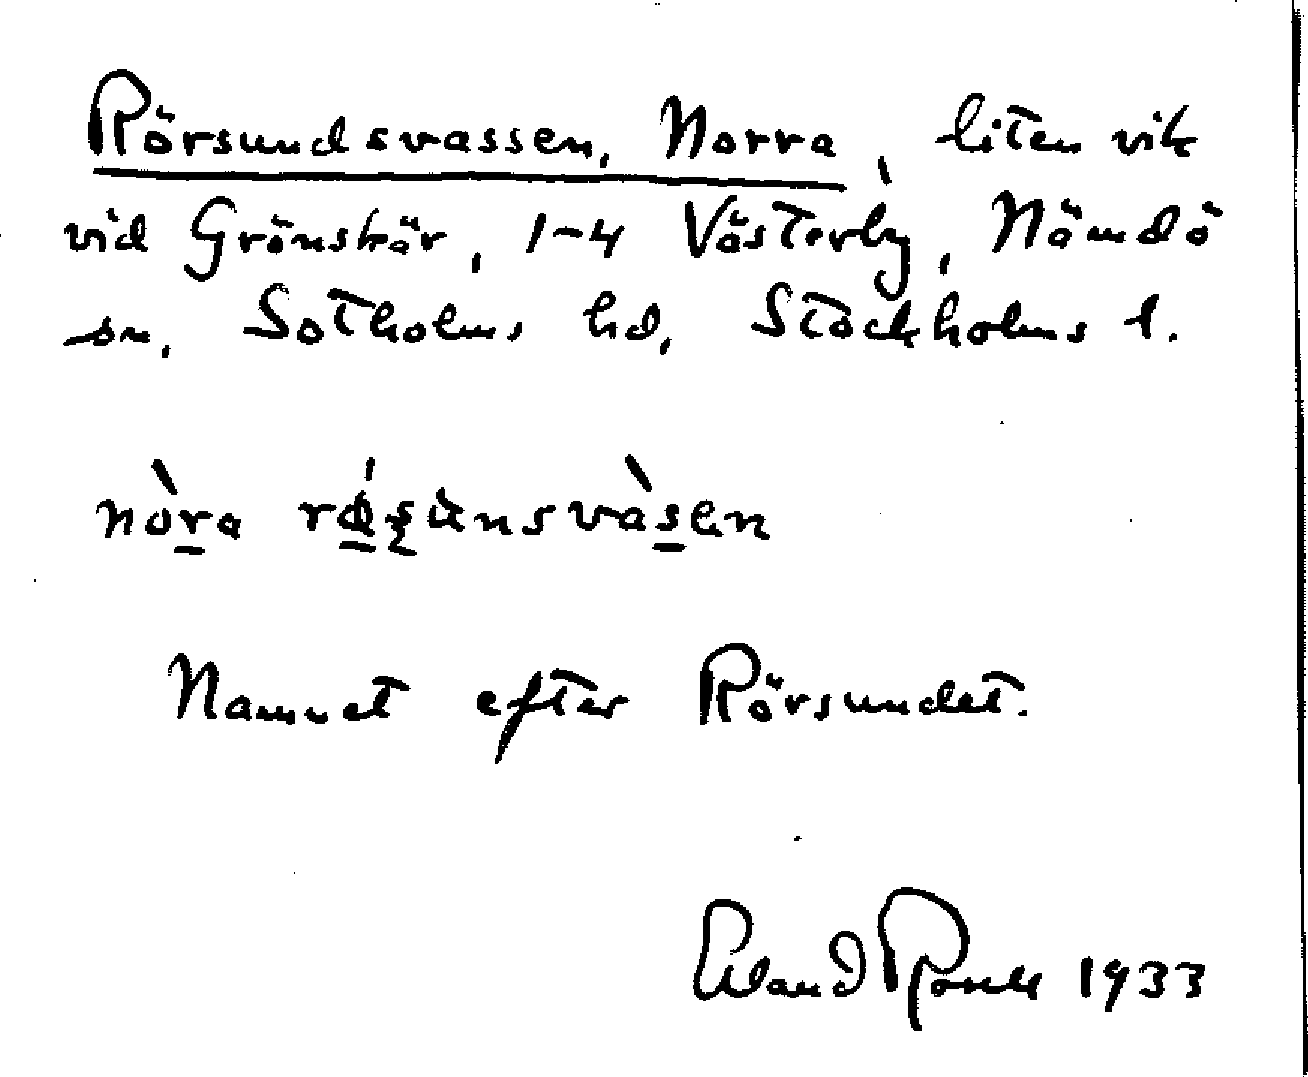 Rörsundsvassen, Norra, liten vik
vid Grönskär, 1-4 Västerby, Nämdö
sn, Sotholms hd, Stockholms l.
nòra
Namnet efter Rörsundet.
1933